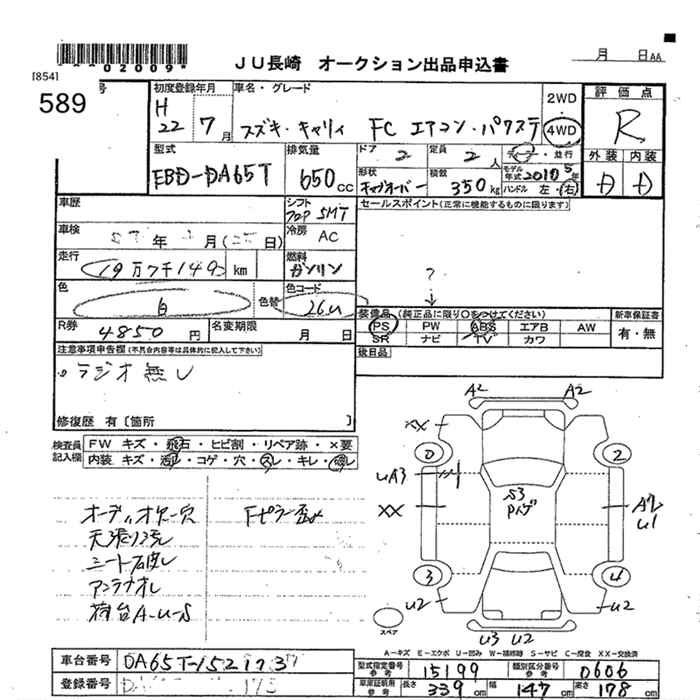 *02009*
JU長崎 オークション出品申込書
月 日AA
[854]
号
589
初度登録年月
車名・グレード
2WD
評価点
H
22 7月
スズキ・キャリィ FC エアコン・パワステ
4WD
R
型式
排気量
ドア 2
定員 2人
ディーラー・並行
外装 内装
EBD-DA65T
650 CC
形状
キャブオーバー
積数 350kg
モデル年式 2010 5年
ハンドル 左・右
A A
車歴
シフト
フロア 5MT
セールスポイント(正常に機能するものに限ります)
車検
年 月 日)
冷房 AC
走行
19万7千149 km
燃料
ガソリン
?
色
白
色替
色コード
26U
装備品 (純正品に限り○をつけてください)
新車保証書
PS PW ABS エアB AW
有・無
R券
4850円
名変期限
月 日
SR ナビ TV カワ
後日品
注意事項申告欄(不具合内容等は具体的に記入して下さい)
・ラジオ無し
修復歴 有[箇所 ]
A2 A2
検査員
記入欄
FW キズ・飛石・ヒビ割・リペア跡・×要
内装 キズ・汚レ・コゲ・穴・スレ・キレ・破レ
XX
0 2
UA3
S3
Pハゲ
XX
A2
U1
オーディオ欠穴
Fピラー歪み
天張り汚れ
シート石皮レ
アンテナオレ
荷台A-U-S
3 4
U2 U2
スペア
U3 U2
A-キズ E-エクボ U-凹み W-補修跡 S-サビ C-腐食 XX-交換済
車台番号
DA65T-152173
型式指定番号
参考
15199
類別区分番号
参考
0606
登録番号
車庫証明用
参考
長さ 339cm
幅 147cm
高さ 178cm